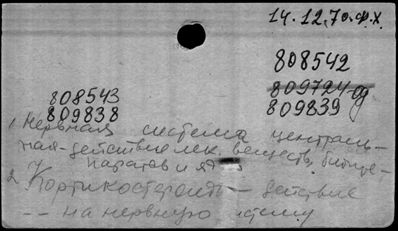 14.12.70.ф.х
808542
809724-од
808543
809838 809839
1. Нервная система централь-
ная-действие лек. веществ,
и яд
2. Кортикостероиды - действие
-- на нервную систему